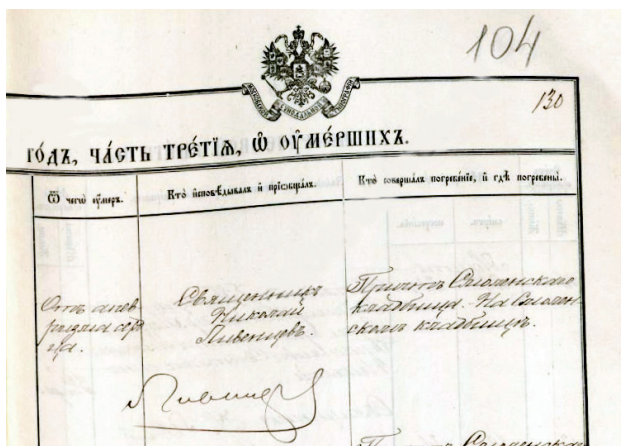 104
130
го́дъ, ча́сть тре́тїѧ, ѡ҆ ᲂу҆ме́ршихъ.
Ѿ чегѡ̀ ᲂу҆́меръ.
Кто̀ и҆сповѣ́дывалъ и҆ прїѡбща́лъ.
Кто̀ соверша́лъ погребе́нїе, и҆ гдѣ̀ погребены̀.
Отъ анев-
ризма серд-
ца.
Священникъ
Николай
Ливенцевъ.
Причтъ Смоленскаго
кладбища. На Смолен-
скомъ кладбищѣ.